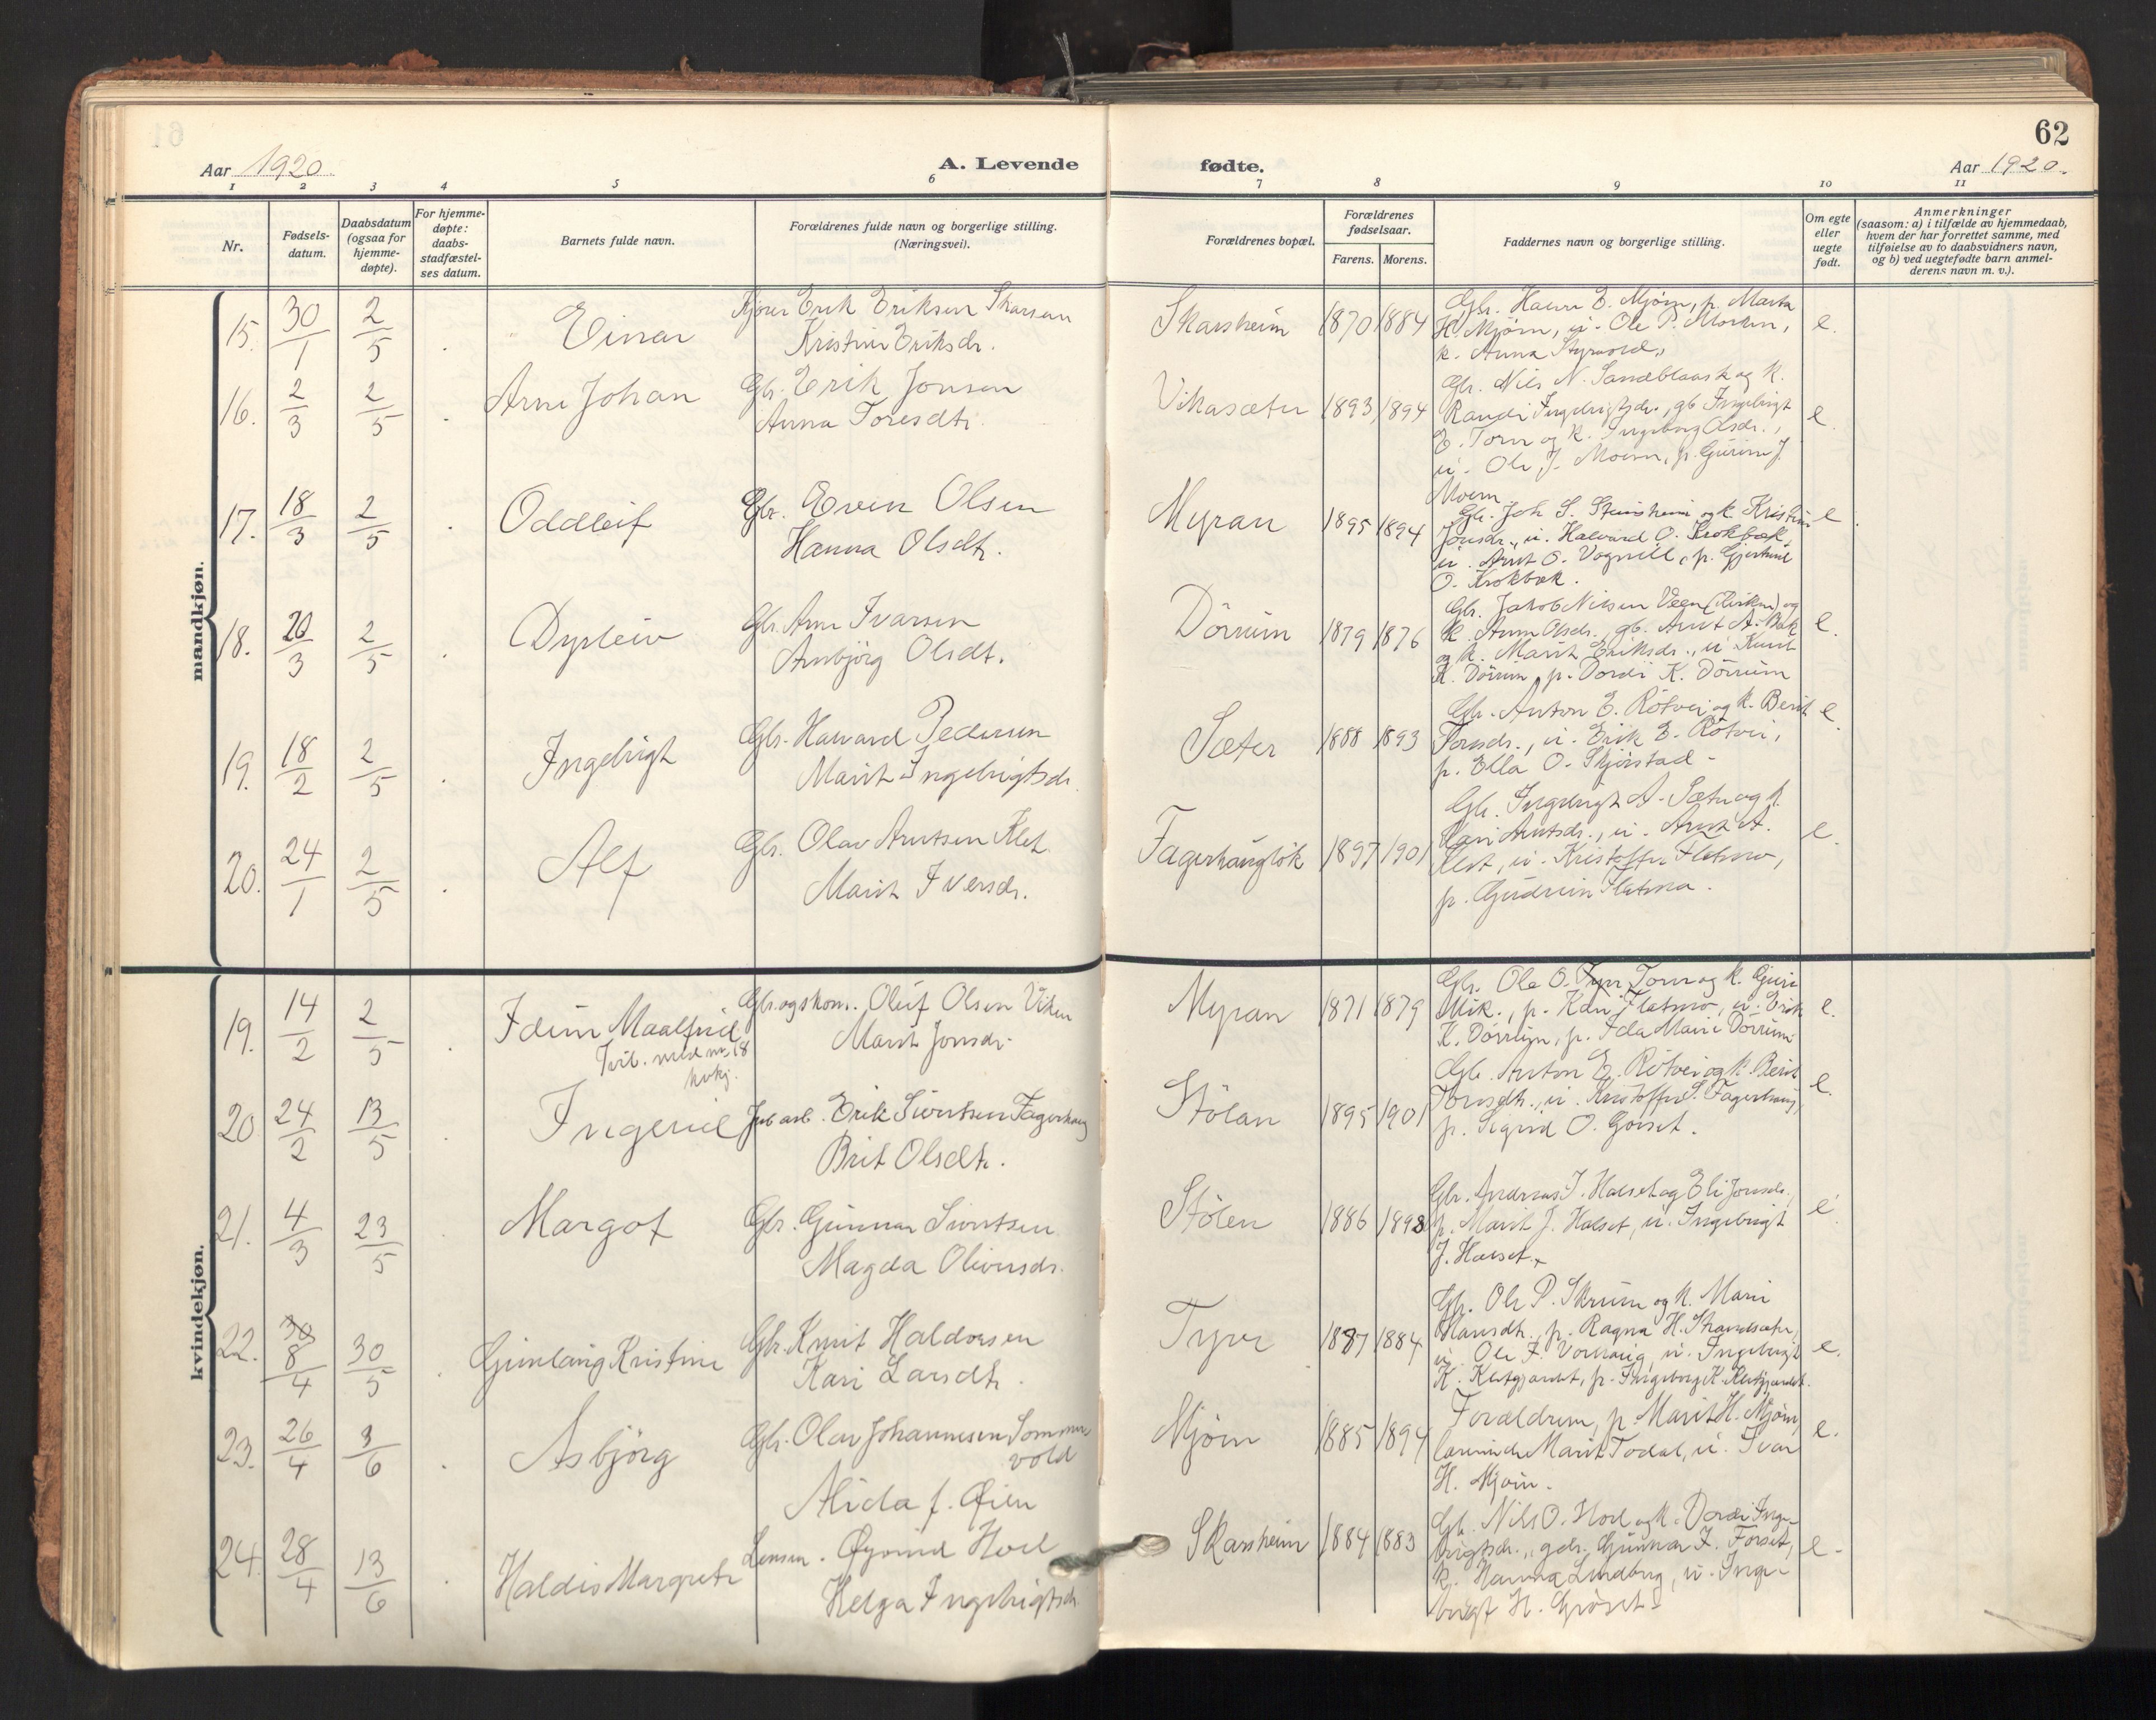 62
Aar 1920.
A. Levende
fødte.
Aar 1920.
1 2 3 4 5 6 7 8 9 10 11
Nr.
Fødsels-
datum.
Daabsdatum
(ogsaa for
hjemme-
døpte).
For hjemme-
døpte:
daabs-
stadfæstel-
ses datum.
Barnets fulde navn.
Forældrenes fulde navn og borgerlige stilling.
(Næringsvei).
Forældrenes bopæl.
Forældrenes
fødselsaar.
Farens. Morens.
Faddernes navn og borgerlige stilling.
Om egte
eller
uegte
født.
Anmerkninger
(saasom: a) i tilfælde av hjemmedaab,
hvem der har forrettet samme, med
tilføielse av to daabsvidners navn,
og b) ved uegtefødte barn anmel-
derens navn m. v.).
mandkjøn.
15. 30/1 2/5 Einar
Erik Eriksen
Kristine Eriksdr.
Skarsheim 1870 1884
H. Mjøen, u. Ole P.
k. Anna
e.
16. 2/3 2/5 Arne Johan
Gbr. Erik Jonsen
Anna Toresdtr.
Vikasæter 1893 1894
Gbr. Nils N. Sandblaast og k.
Randi Ingebrigtsdr., gb Ingebrigt
E. Torve og k. Ingeborg Olsdr.,
u. Ole J. Moen, p. Guruni J.
Moen
e.
17. 18/3 2/5 Oddleif
Gbr. Even Olsen
Hanna Olsdtr.
Myran 1895 1894
Gbr. Joh S. Steinsheim og k. Kristine
Jonsdr., u. Halvard O. Krokbæk,
u. Arnt O. Vognill, p. Gjertrud
O. Krokbæk.
e.
18. 20/3 2/5 Dyrleiv
Gbr. Arne Ivarsen
Arnbjørg Olsdt.
Dörrum 1879 1876
Gbr. Jakob Nilsen Veen og
k. Anne Olsdr., gb. Arnt A. Bak
og k. Marit Eriksdr., u Knut
K. Dörrum, p. Dordi K. Dörrum
e.
19. 18/2 2/5 Ingebrigt
Gbr. Halvard Pedersen
Marit Ingebrigtsdr.
Sæter 1888 1893
Gbr. Anton E. Rötvei og k. Berit
Toresdr., u. Erik E. Rötvei,
p. Ella O. Skjørstad -
e.
20. 24/1 2/5 Alf
Gbr. Olav Arntsen Klet
Marit Iversdr.
Fagerhaugløk 1897 1901
Gbr. Ingebrigt A. Sæter og k.
Kari Arntsdr., u. Arnt A.
Klet, u. Kristoffer Flatmo,
p. Gudrun Flatmo.
e.
kvindekjøn.
19. 14/2 2/5 Idun Maalfrid
Tvil. med nr. 18
kvkj.
Gbr. og skom. Oluf Olsen Viken
Marit Jonsdr.
Myran 1871 1879
Gbr. Ole O. Torve og k. Guri
Mik., p. Kari Flatmo, u. Erik
K. Dörrum, p. Ida Marie Dörrum
e.
20. 24/2 13/5 Ingerid
Jnb arb. Erik Sivertsen Fagerhaug
Brit Olsdtr.
Stölan 1895 1901
Gbr. Anton E. Rötvei og k. Berit
Toresdtr., u. Kristoffer S. Fagerhaug,
p. Sigrid O. Gorset.
e.
21. 4/3 23/5 Margot
Gbr. Gunnar Sivertsen
Magda Oliversdr.
Stölen 1886 1898
Gbr. Andreas J. Halset og Eli Jonsdr.
p. Marit J. Halset, u. Ingebrigt
J. Halset.
e.
22. 8/4 30/5 Gunlaug Kristine
Gbr. Knut Haldorsen
Kari Larsdtr.
Tyrr 1887 1884
Gbr. Ole P. Skrum og k. Mari
Hansdtr., p. Ragna H. Strandsæter,
u. Ole F. u. Ingebrigt
K. Kletgjærdet, p. Ingeborg K. Kletgjærdet.
e.
23. 26/4 3/6 Asbjörg
Gbr. Olav Johannesen Sommer
vold
Alida f. Øien
Mjøen 1885 1894
Forældrene, p. Marit H. Mjøen,
lærerinde Marit Todal, u. Ivar
H. Mjøen.
e.
24. 28/4 13/6 Haldis Margrete
Lensm. Øyvind Hoel
Helga Ingebrigtsdr.
Skarsheim 1884 1883
Gbr. Nils O. Hoel og k. Dordi Inge-
brigtsdr., gdr. Gunnar I. Forset,
k. Hanna Lindberg, u. Inge-
brigt H. Gröset
e.